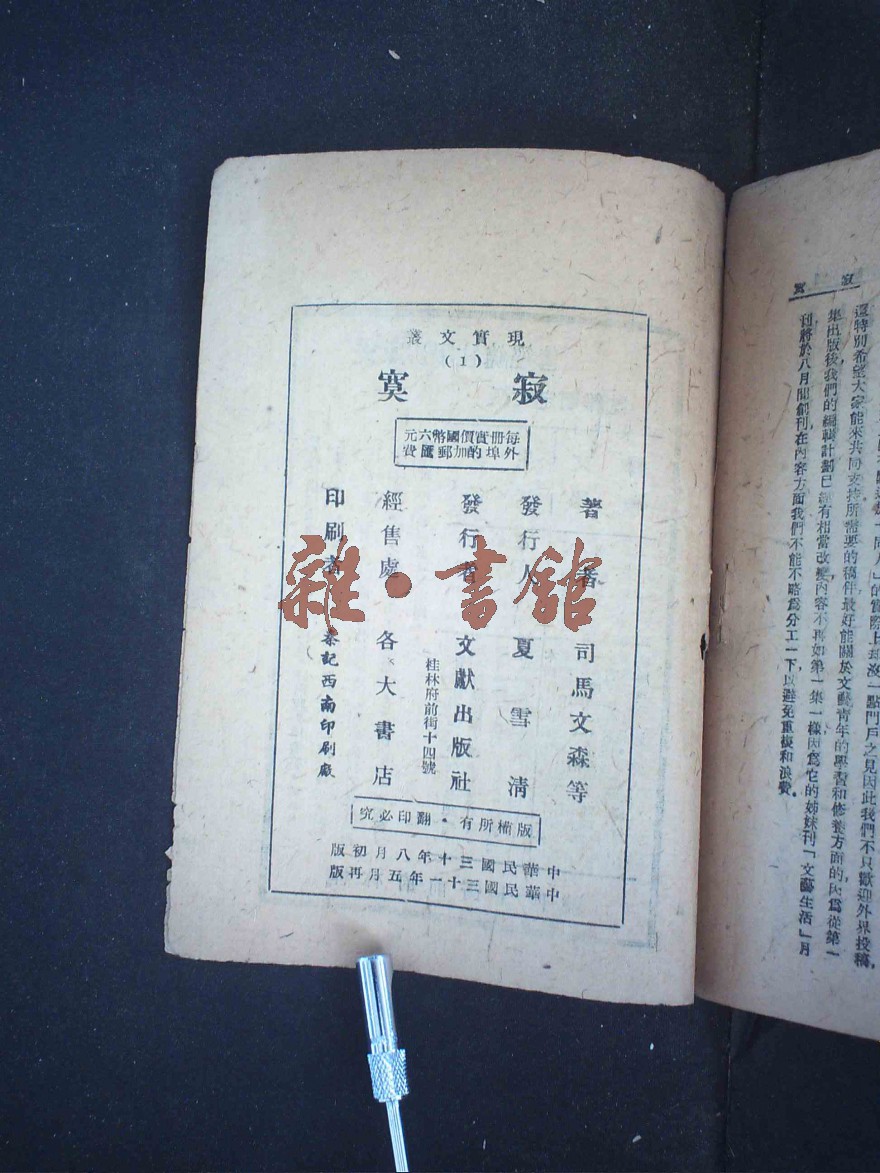 現實文叢
(1)
寂寞
每冊實價國幣六元
外埠酌加郵匯費
著者 司馬文森等
發行人 夏雪清
發行者 文獻出版社
桂林府前街十四號
經售處 各大書店
印刷者 秦記西南印刷廠
版權所有·翻印必究
中華民國三十年八月初版
中華民國三十一年五月再版
雜·書館
寂寞
還特別希望大家能來共同支持所需要的稿件最好能關於文藝青年的學習和修養方面的,因爲從第一
集出版後我們的編輯計劃已經有相當改變,內容不再如第一集一樣因爲它的姊妹刊「文藝生活」月
刊將於八月間創刊在內容方面我們不能不略爲分工一下,以避免重複和浪費。